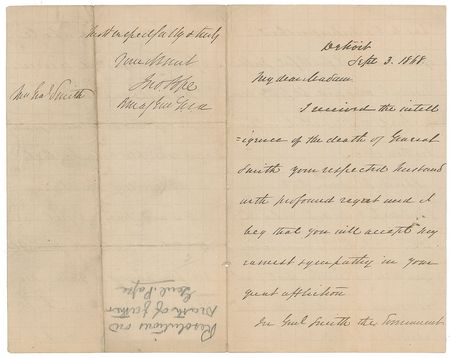 Detroit
Sept 3. 1868
My dear Madam.
I received the intell
=igence of the death of General
Smith your respected husband
with profound regret and I
beg that you will accept my
earnest sympathy in your
great affliction
In Genl Smith the Government
Most respectfully & truly
Your obdt Servt
Jno Pope
Bvt Maj Genl U.S.A
Mrs Genl Smith
Resolutions on
Death of father
Genl Pope